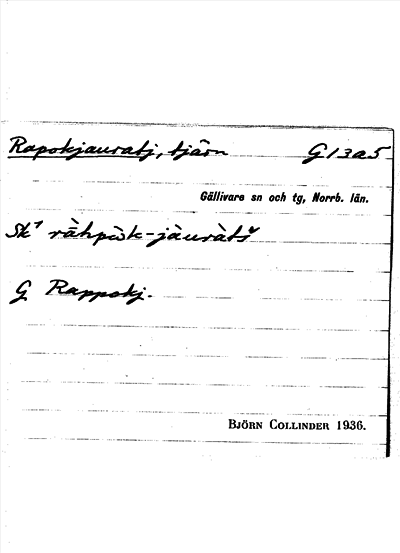 Rapokjauratj, tjärn G13a5
Gällivare sn och tg, Norrb. län.
Sk⁷ ràhpòk-jàuràtš
G Rappokj.
BJÖRN COLLINDER 1936.